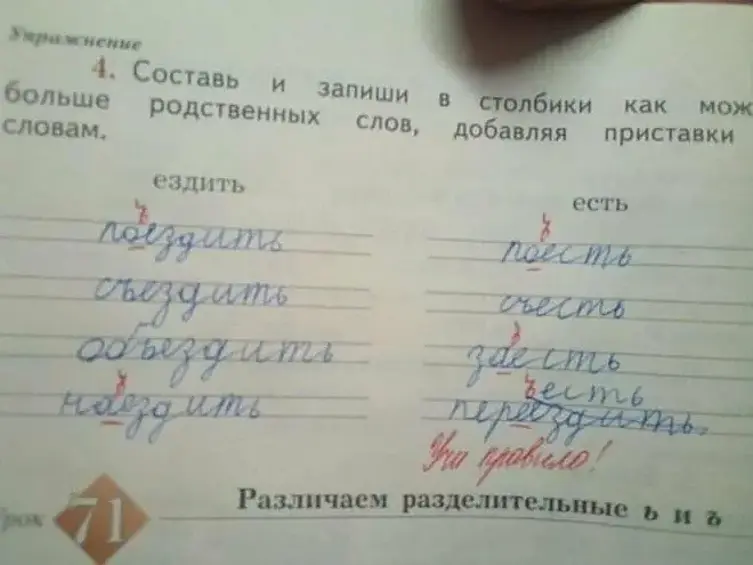 Упражнение
4. Составь и запиши в столбики как мож
больше родственных слов, добавляя приставки
словам.
ездить
есть
ъ
поездить
ъ
поесть
съездить
съесть
объездить
ъ
заесть
ъ
наездить
ъесть
переездить.
Учи правило!
Урок 71 Различаем разделительные ь и ъ